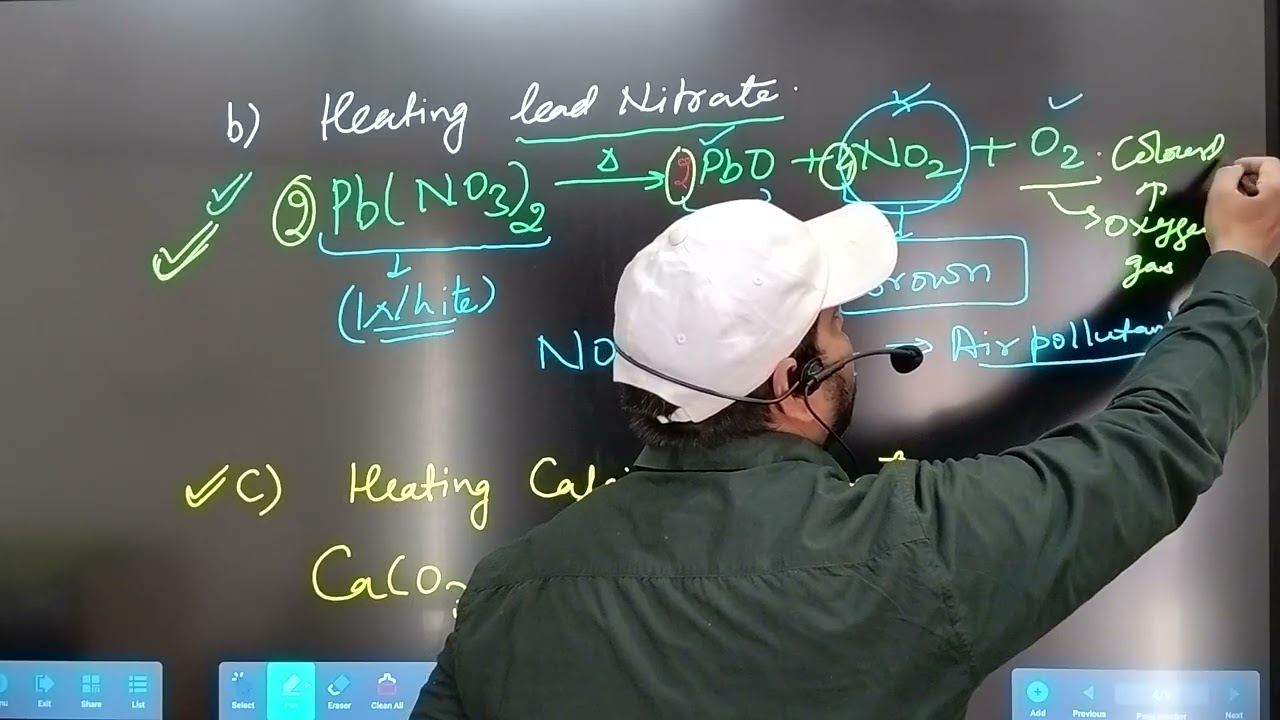 b) Heating lead Nitrate.
2 Pb(NO3)2 Δ→ 2 PbO + 4NO2 + O2.
Oxygen
gas
(White)
Brown
NO
→ Air pollutant
c) Heating
CaCO3
Exit Share List Select Eraser Clean All Add Previous Next